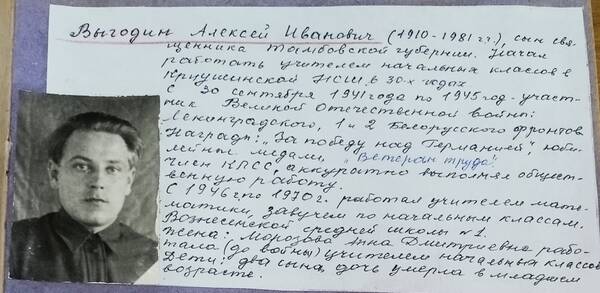 Выгодин Алексей Иванович (1910-1981 гг.), сын свя-
щенника Тамбовской губернии. Начал
работать учителем начальных классов в
Криушинской НСШ в 30-х годах.
С 30 сентября 1941 года по 1945 год - участ-
ник Великой Отечественной войны:
Ленинградского, 1 и 2 Белорусского фронтов
Награды: "За победу над Германией", юби-
лейные медали, "Ветеран труда".
член КПСС, аккуратно выполнял общест-
венную работу.
С 1946 г. по 1970 г. работал учителем мате-
матики, завучем по начальным классам,
Вознесенской средней школы №1.
Жена: Морозова Анна Дмитриевна рабо-
тала (до войны) учителем начальных классов
Дети: два сына, дочь умерла в младшем
возрасте.